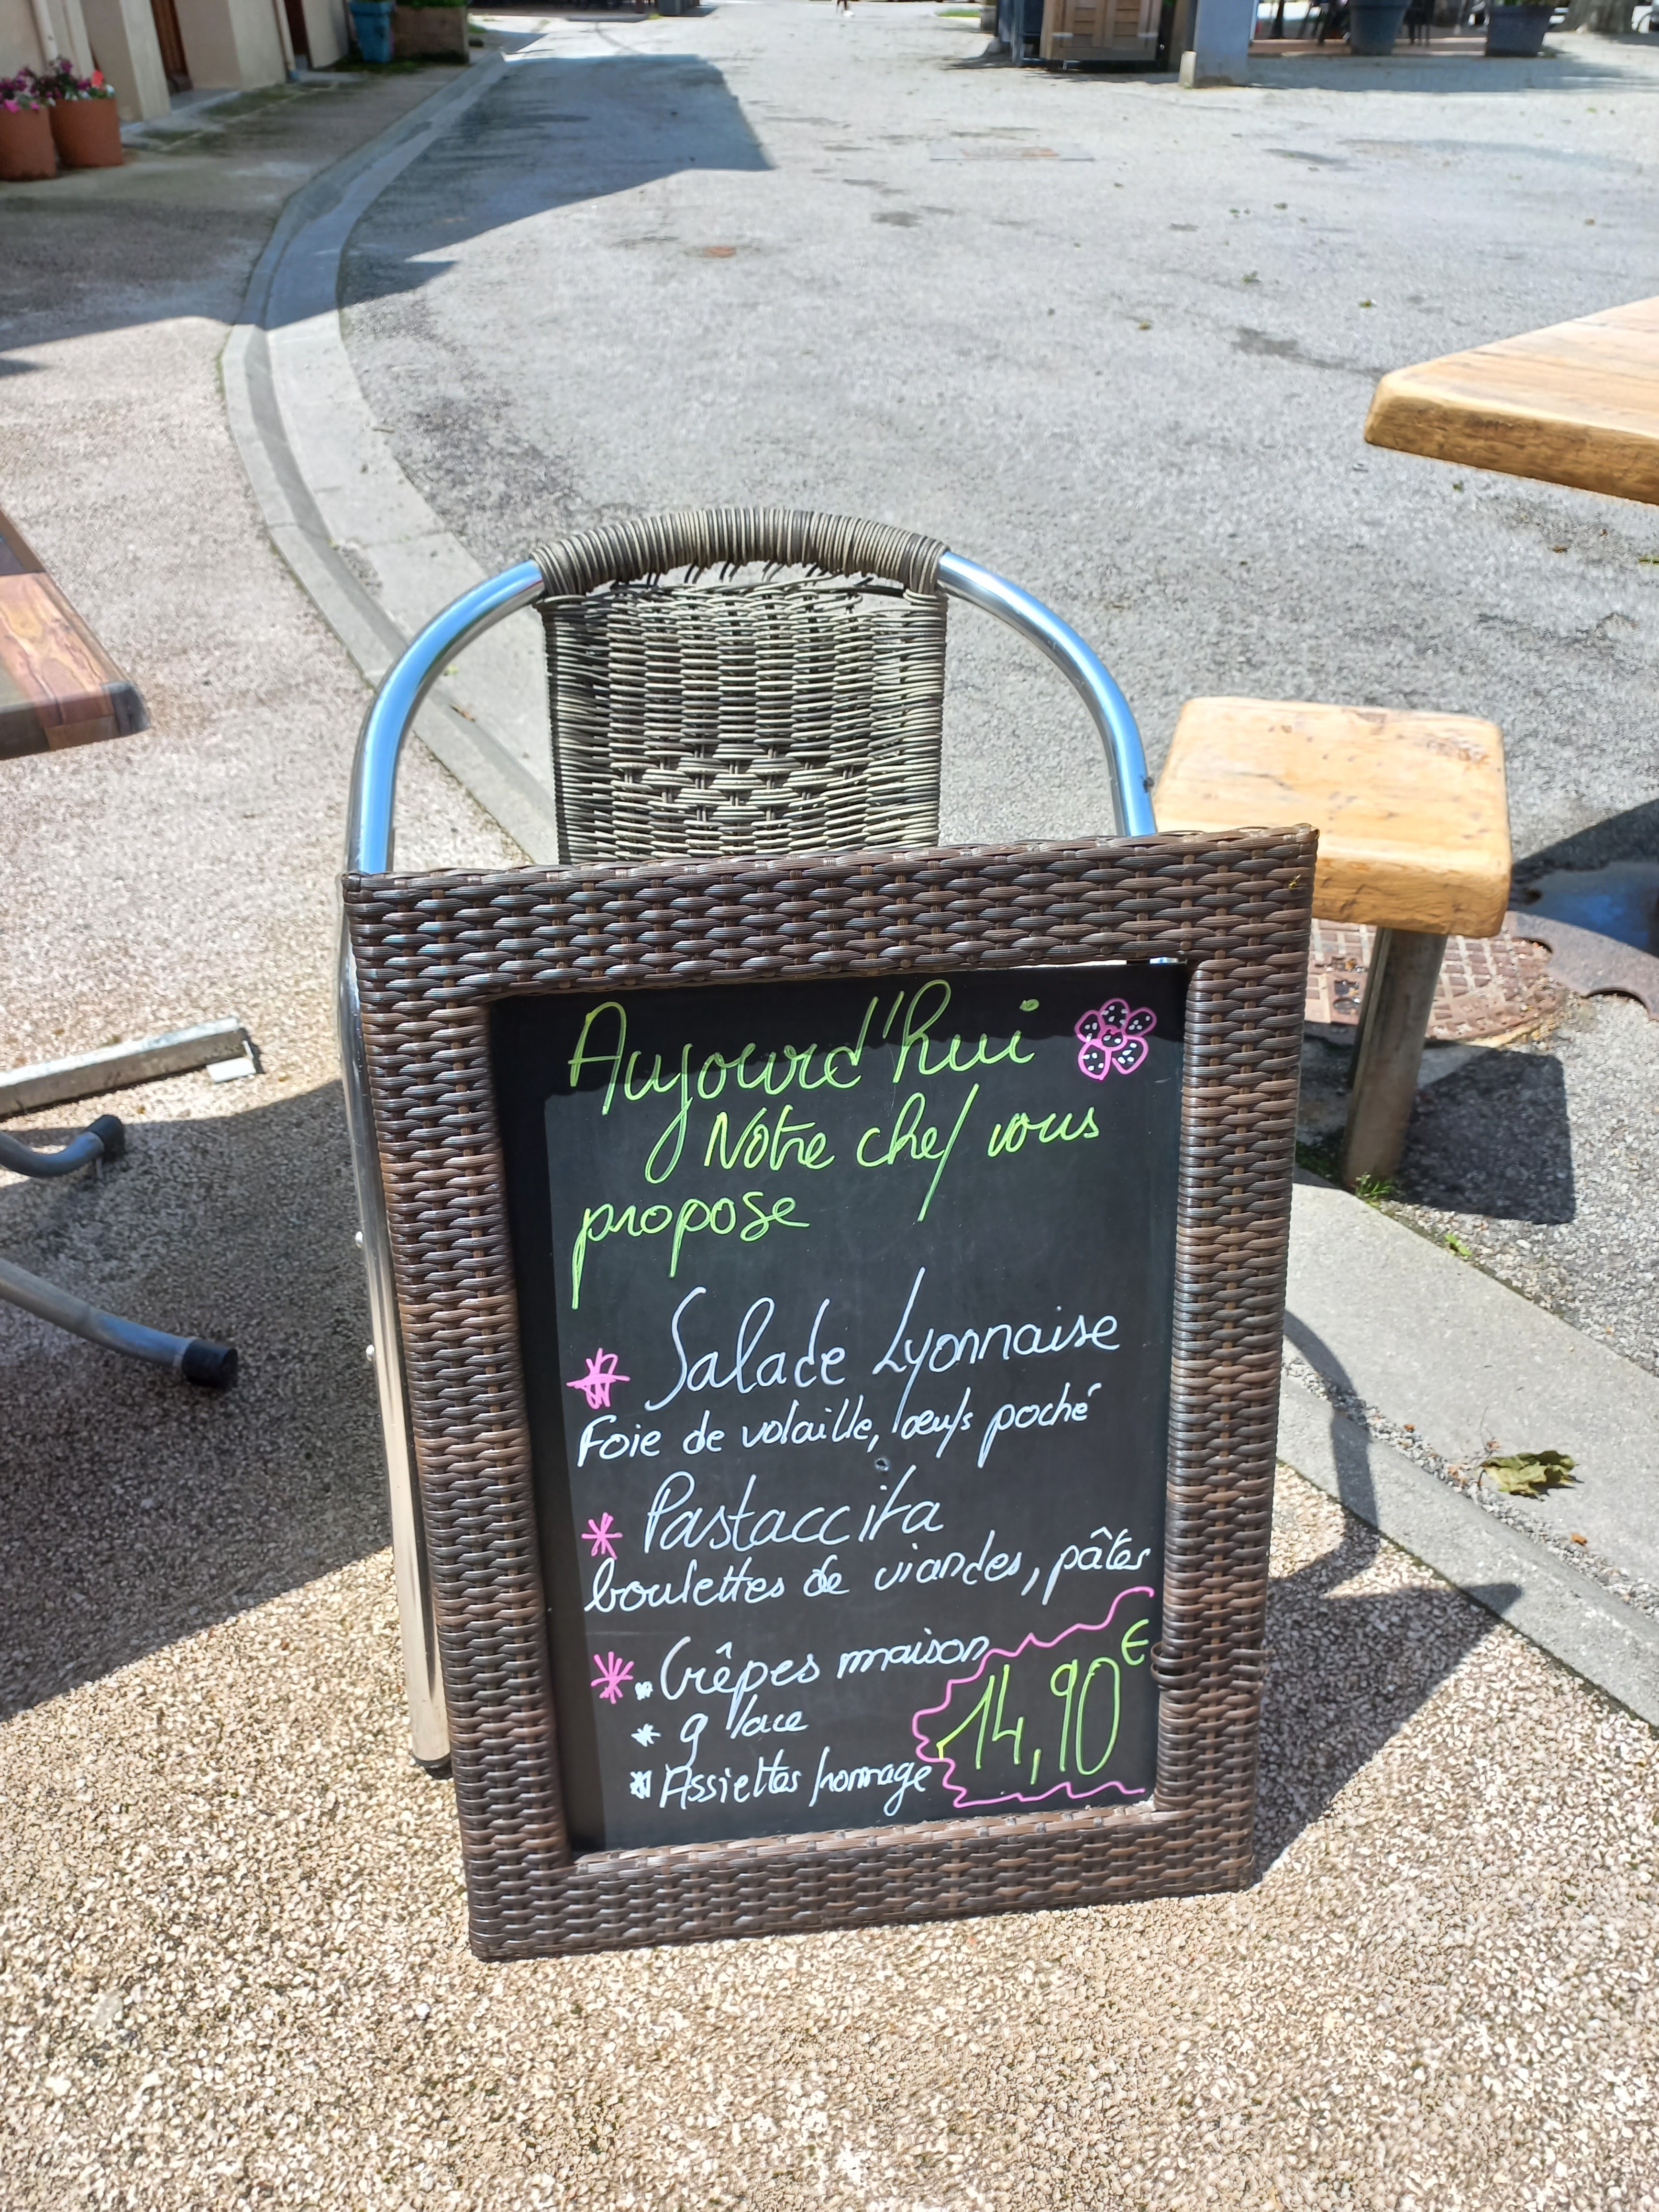 Aujourd'hui
Notre chef vous
propose
Salade Lyonnaise
Foie de volaille, œufs poché
Pastaccita
boulettes de viandes, pâtes
Crêpes maison
glace
Assiettes fromage
14,90€